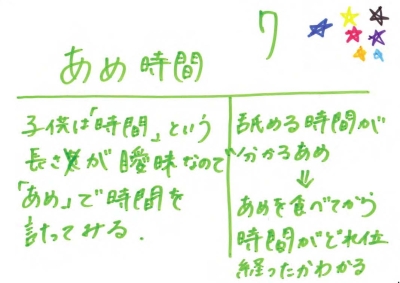 7
あめ時間
子供は「時間」という
長さが曖昧なので
「あめ」で時間を
計ってみる.
舐める時間が
分かるあめ
⇓
あめを食べてから
時間がどれ位
経ったかわかる